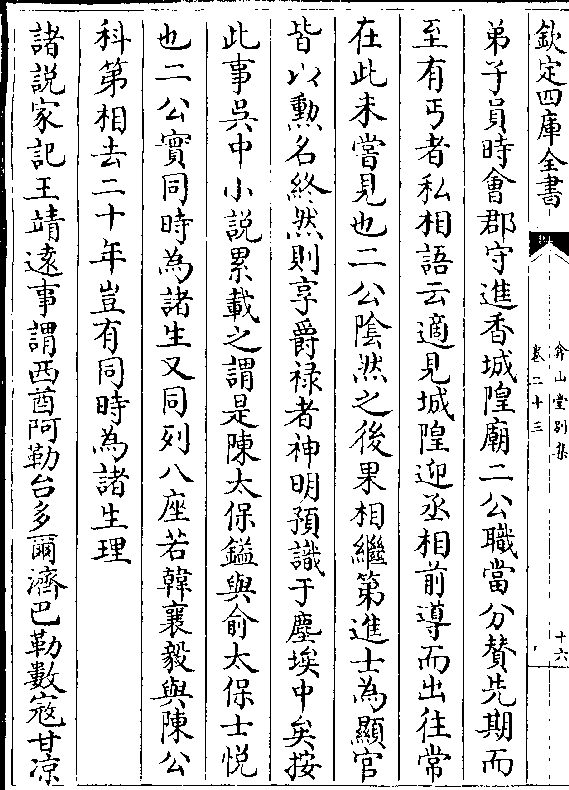 欽定四庫全書
弇山堂别集
卷二十三
十六
弟子員時會郡守進香城隍廟二公職當分賛先期而
至有丐者私相語云適見城隍迎丞相前導而出往常
在此未嘗見也二公陰然之後果相繼第進士為顯官
皆以勲名終然則享爵禄者神明預識于塵埃中矣按
此事吳中小説累載之謂是陳太保鎰與俞太保士悦
也二公實同時為諸生又同列八座若韓襄毅與陳公
科第相去二十年豈有同時為諸生理
諸説家記王靖逺事謂西酋阿勒台多爾濟巴勒數寇甘凉